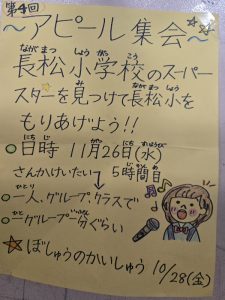 第4回
～アピール集会～
長松小学校のスーパー
スターを見つけて長松小を
もりあげよう!!
日時 11月26日(水)
さんかけいたい 5時間目
一人、グループ、クラスで
一グループ一分ぐらい
ぼしゅうのかいしゅう 10/28(金)